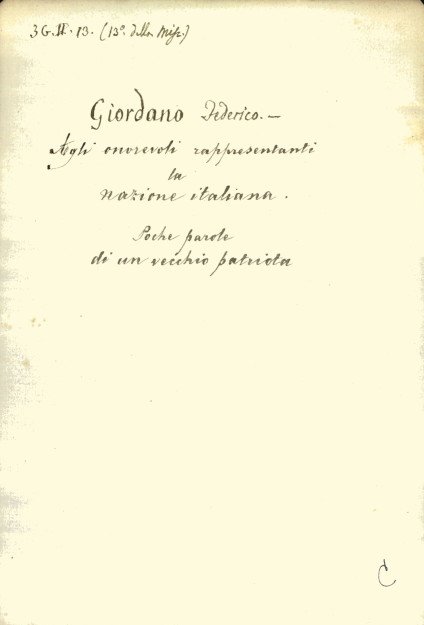 3 G. II. 13. (13º della Misc.)
Giordano Federico. —
Agli onorevoli rappresentanti
la
nazione italiana.
Poche parole
di un vecchio patriota
C